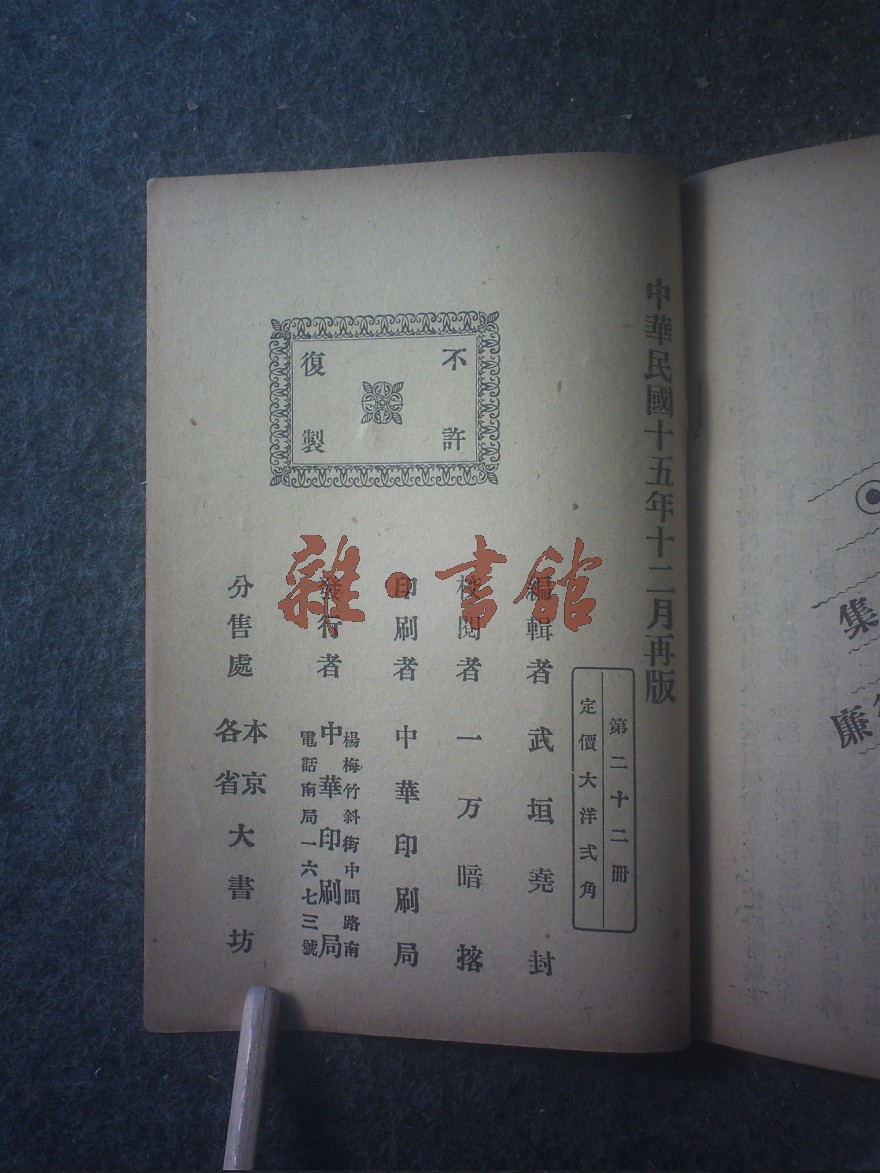 中華民國十五年十二月再版
第二十二册
定價大洋弍角
不許
復製
編輯者 武垣堯封
校閱者 一万暗
印刷者 中華印刷局
發行者 中華印刷局
楊梅竹斜街中間路南
電話南局一六七三號
分售處 本京各省大書坊
雜·書館
集
廉